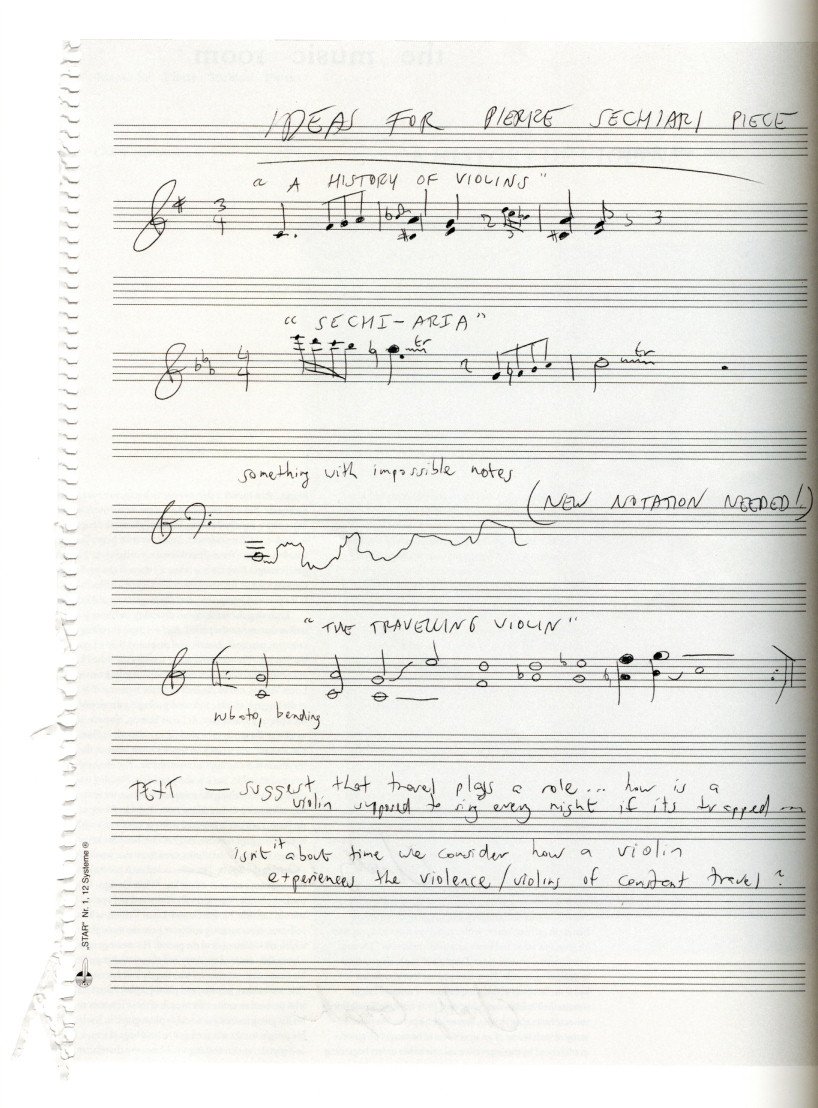 the music room
IDEAS FOR PIERRE SECHIARI PIECE
"A HISTORY OF VIOLINS"
3
4
2
3
5 3
"SECHI-ARIA"
4
4
tr
tr
something with impossible notes
(NEW NOTATION NEEDED!)
"THE TRAVELLING VIOLIN"
rubato, bending
TEXT — suggest that travel plays a role... how is a
violin supposed to sing every night if its trapped —
isnt it about time we consider how a violin
experiences the violence/violins of constant travel?
„STAR" Nr. 1, 12 Systeme ®